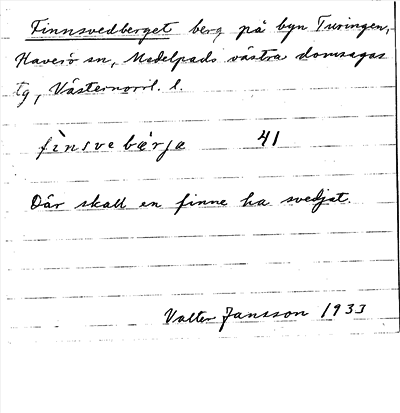 Finnsvedberget berg på byn Turingen,
Haverö sn, Medelpads västra domsagas
tg, Västernorrl. l.
fìnsvebærje 41
Där skall en finne ha svedjat.
Valter Jansson 1933